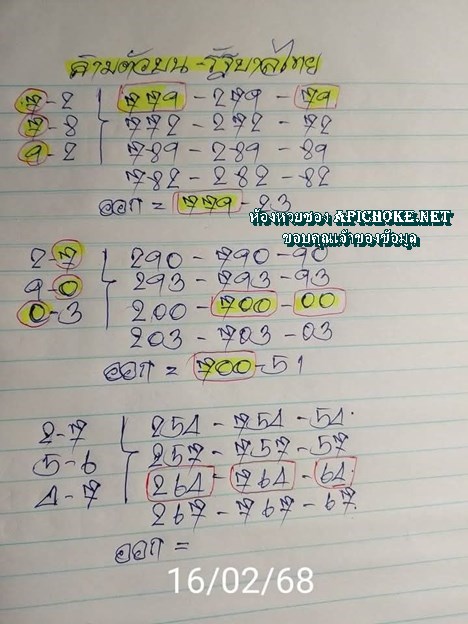 สามตัวบน-รัฐบาลไทย
7-2 779 - 279 - 79
7-8 772 - 272 - 72
9-2 789 - 289 - 89
782 - 282 - 82
ออก = 779 - 23
ห้องหวยซอง APICHOKE.NET
ขอบคุณเจ้าของข้อมูล
2-7 290 - 790 - 90
9-0 293 - 793 - 93
0-3 200 - 700 - 00
203 - 703 - 03
ออก = 700-51
2-7 254 - 754 - 54
5-6 257 - 757 - 57
4-7 264 - 764 - 64
267 - 767 - 67
ออก =
16/02/68